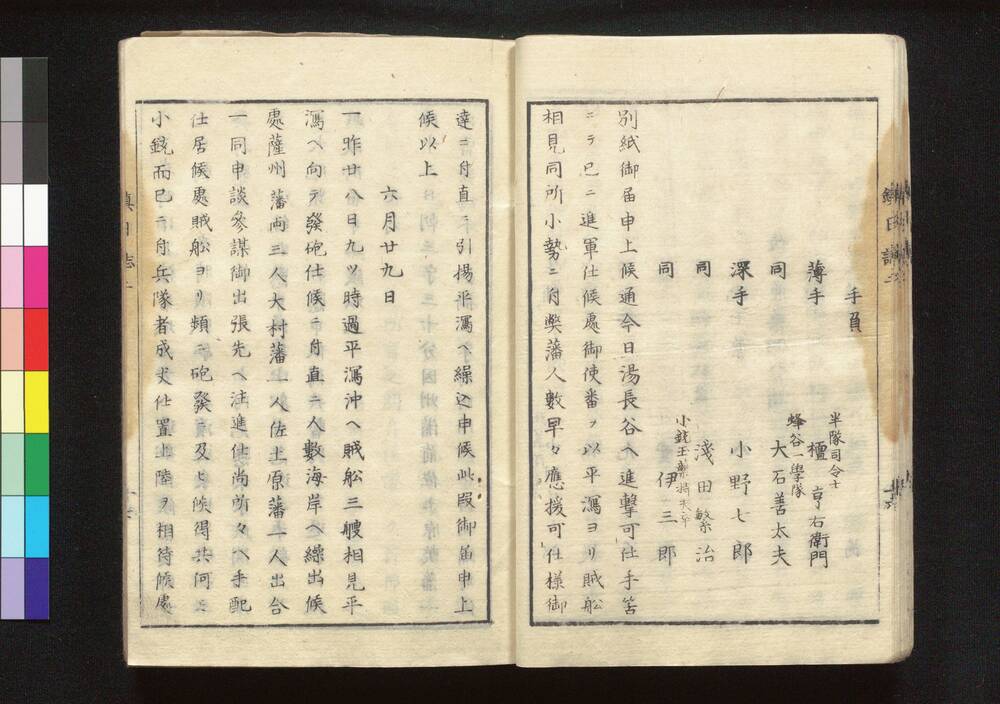 手負
半隊司令士
薄手 檀亨右衛門
蜂谷一學隊
同 大石善太夫
深手 小野七郎
同 淺田繁治
小銃玉藥持夫卒
同 伊三郎
別紙御届申上候通今日湯長谷ヘ進擊可仕手筈
ニテ已ニ進軍仕候處御使番ヲ以平潟ヨリ賊舩
相見同所小勢ニ付弊藩人數早々應援可仕樣御
達ニ付直ニ引揚平潟ヘ繰込申候此段御届申上
候以上
六月廿九日
一昨廿八日九ツ時過平潟沖ヘ賊舩三艘相見平
潟ヘ向テ發砲仕候ニ付直ニ人數海岸ヘ繰出候
處薩州藩両三人大村藩一人佐土原藩一人出合
一同申談參謀御出張先ヘ注進仕尚所々ヘ手配
仕居候處賊舩ヨリ頻ニ砲發ニ及ヒ候得共何分
小銃而已ニ付兵隊者成丈仕置上陸ヲ相待候處